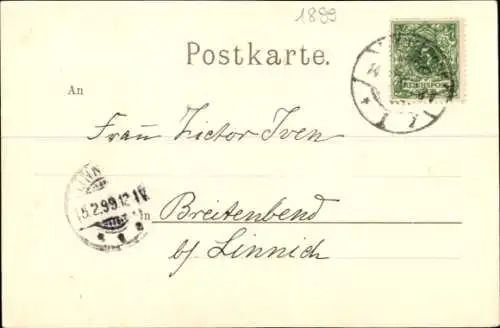 1899
Postkarte.
An
REICHSPOST
14
Frau Victor Iven
LINN
15.2.99.12-1N.
in Breitenbend
b/ Linnich